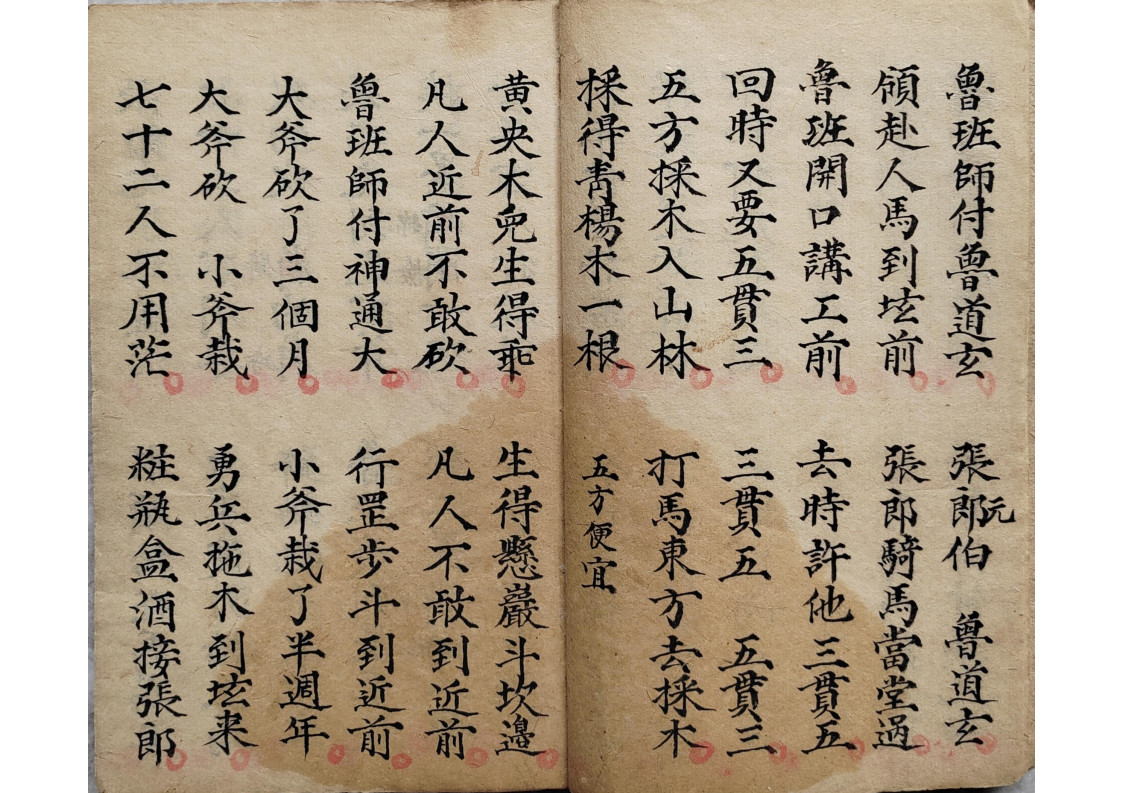 魯班師付魯道玄 張郎元伯 魯道玄
領赴人馬到垓前 張郎騎馬當堂過
魯班開口講工前 去時許他三貫五
回時又要五貫三 三貫五 五貫三
五方採木入山林 打馬東方去採木
採得青楊木一根 五方便宜
黃央木兜生得乖 生得懸巖斗坎邊
凡人近前不敢砍 凡人不敢到近前
魯班師付神通大 行罡步斗到近前
大斧砍了三個月 小斧栽了半週年
大斧砍 小斧栽 勇兵拖木到垓来
七十二人不用茫 粧瓶盒酒接張郎